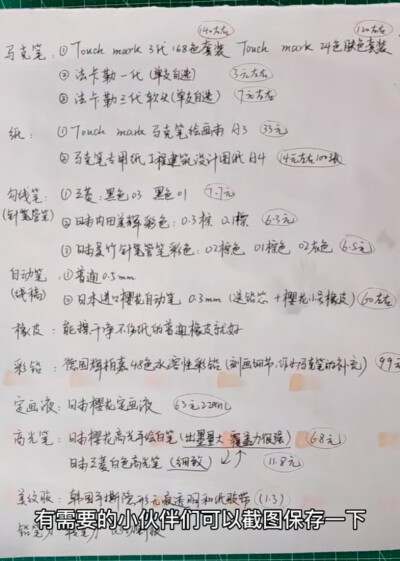 140左右 120左右
马克笔：① Touch mark 3代 168色套装 Touch mark 24色肤色套装
② 法卡勒一代（单支自选） 3元左右
③ 法卡勒三代软头（单支自选） 7元左右
纸：① Touch mark 马克笔绘画本 A3 33元
② 马克笔专用纸 工程建筑设计图纸 A4 14元左右100张
勾线笔：① 三菱：黑色03 黑色01 7.7元
(针管笔) ② 日本内田美辉彩色：0.3棕 0.1棕 6.3元
③ 日本吴竹针管笔彩色：02棕色 01棕色 02灰色 6.5元
自动笔：① 普通0.5mm
(线稿) ② 日本进口樱花自动笔 0.3mm（送铅芯+樱花小号橡皮） 60左右
橡皮：能擦干净不伤纸的普通橡皮就好
彩铅：德国辉柏嘉48色水溶性彩铅（刻画细节，作为马克笔的补充） 99元
定画液：日本樱花定画液 63元220ML
高光笔：日本樱花高光手绘白笔（出墨量大 覆盖力很强） 6.8元
日本三菱白色高光笔（细致） 11.8元
美纹胶：韩国手撕隐形无痕透明和纸胶带 (1.3)
有需要的小伙伴们可以截图保存一下